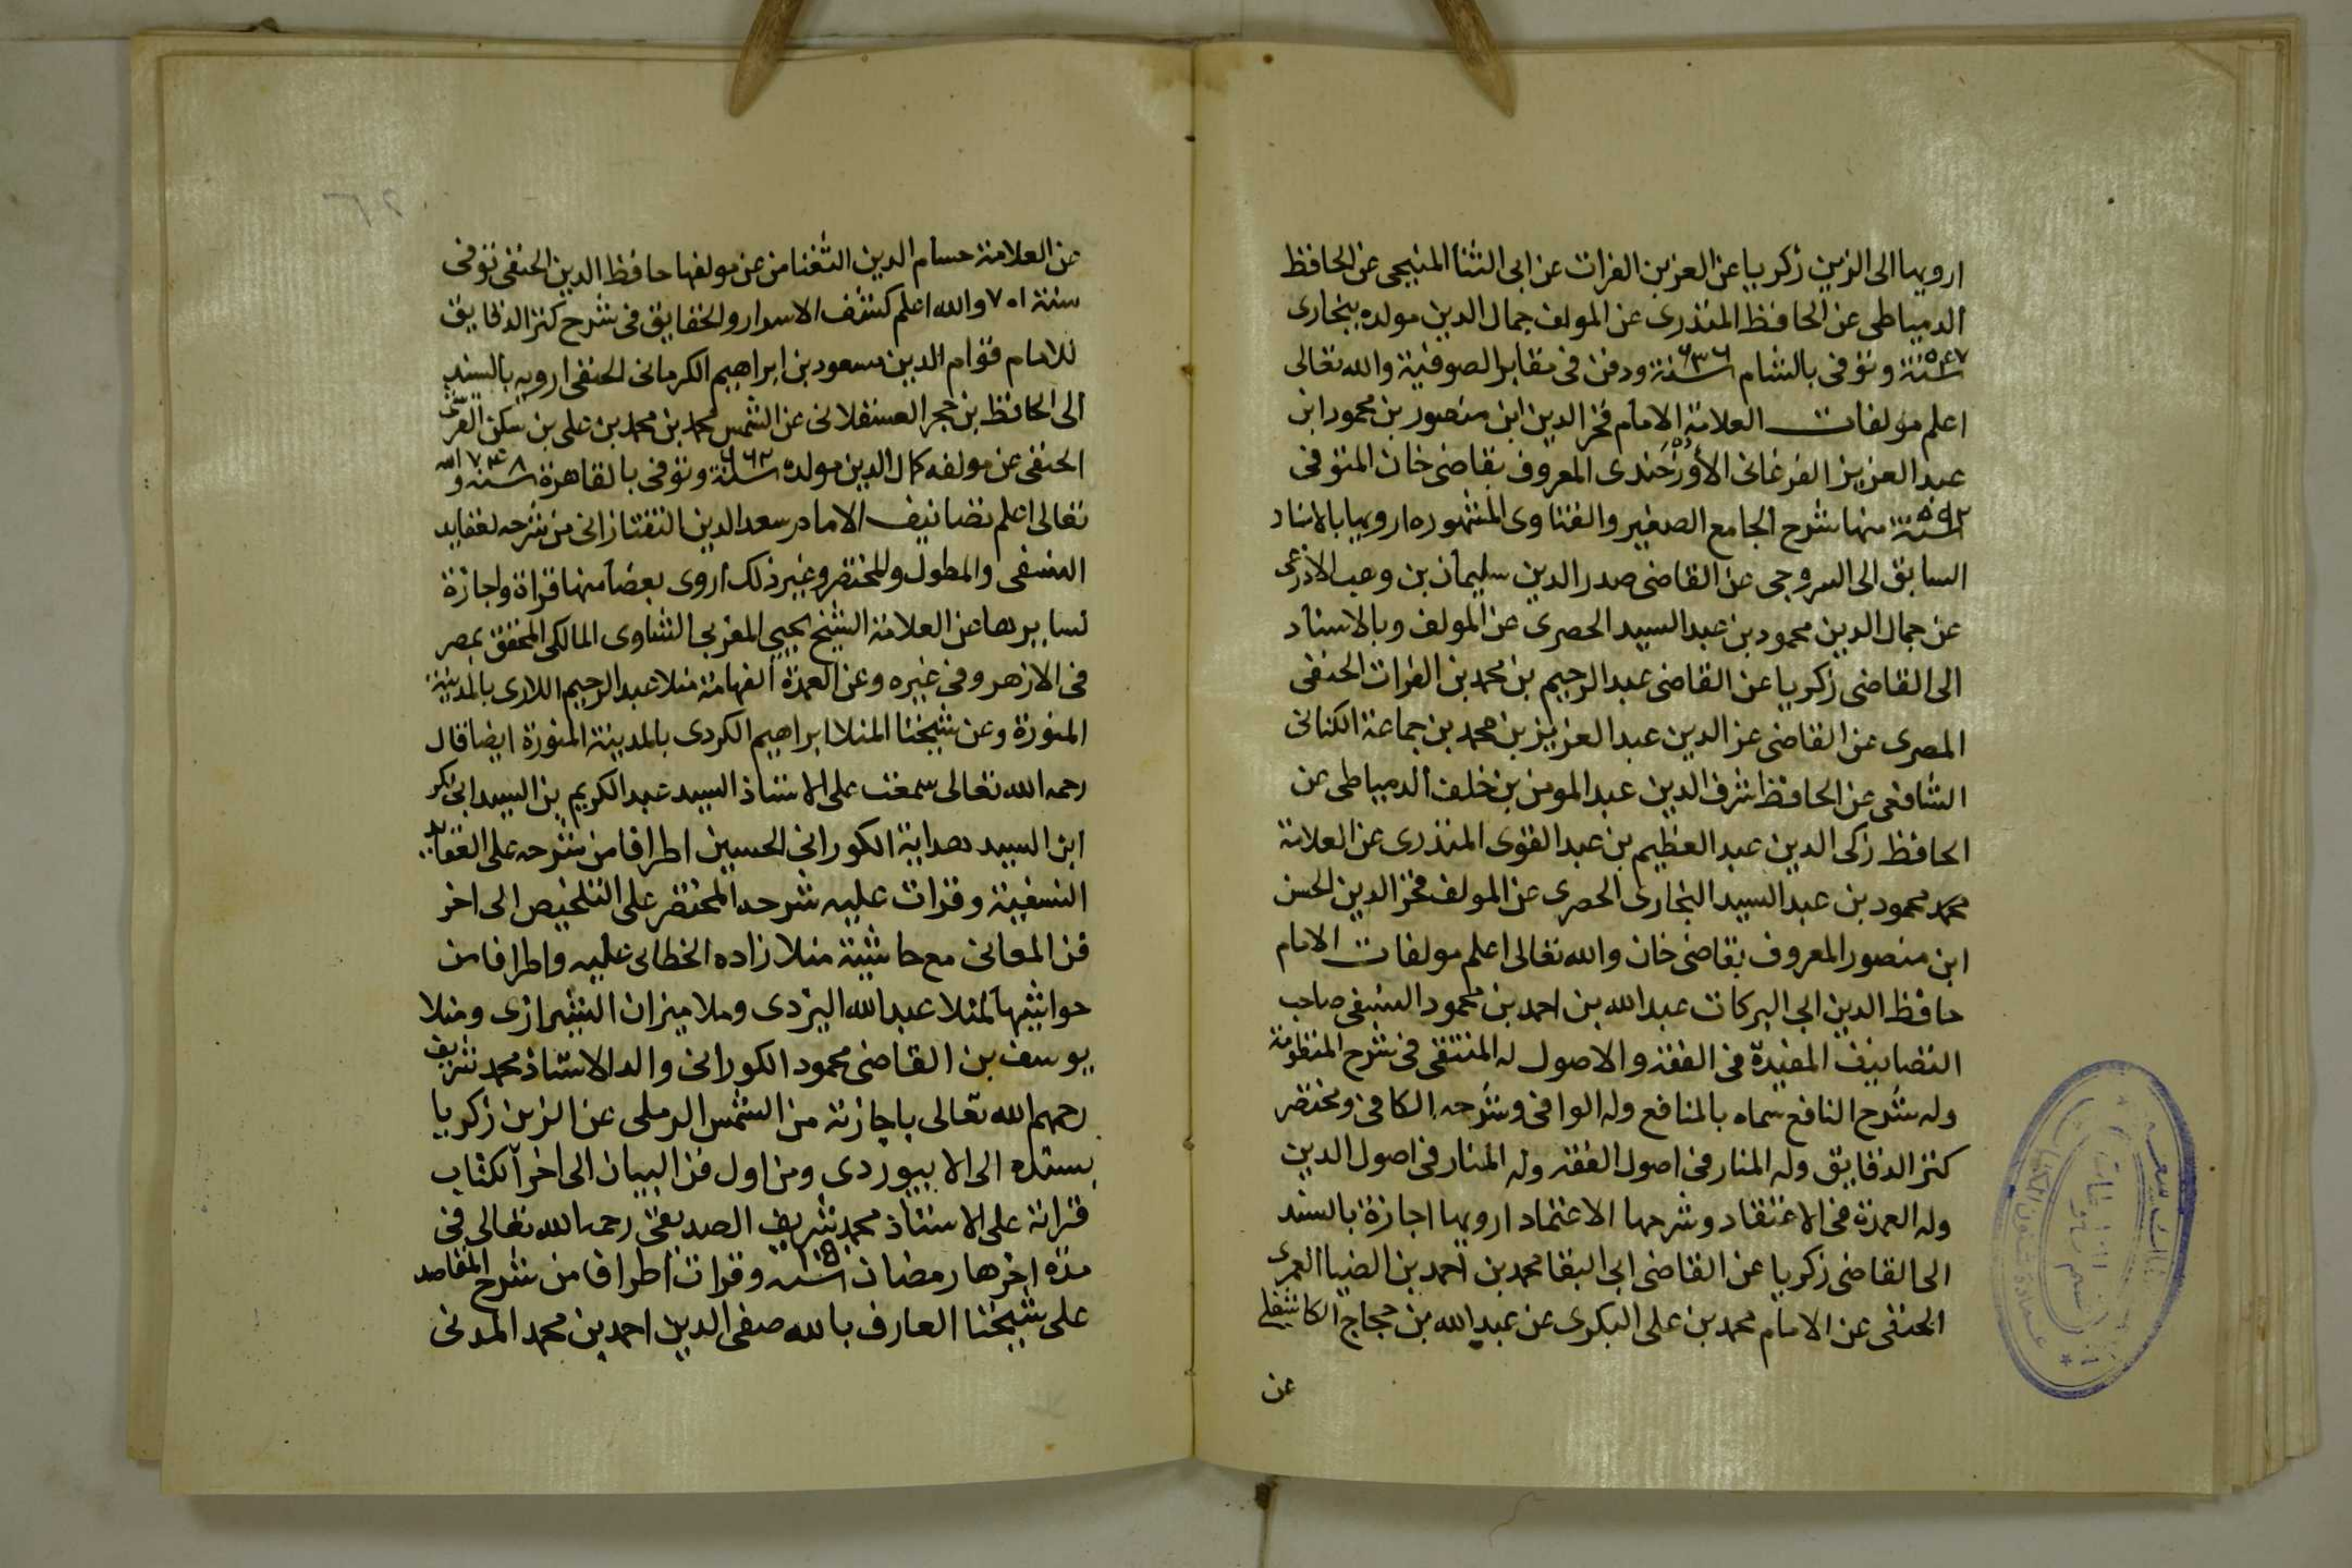 ارويها الى الزين زكريا عن العز بن الفرات عن ابى الثنأ المنبجى عن الحافظ
الدمياطى عن الحافظ المنذرى عن المولف جمال الدين مولده ببخارى
سنة ٥٤٧ وتوفى بالشام سنة ٦٣٦ ودفن فى مقابر الصوفية والله تعالى
اعلم مولفات العلامة الامام فخر الدين ابن منصور بن محمود ابن
عبد العزيز الفرغانى الأوزجندى المعروف بقاضى خان المتوفى
سنة ٥٩٢ منها شرح الجامع الصغير والفتاوى المشهوره ارويها بالاسناد
السابق الى السروجى عن القاضى صدر الدين سليمان بن وهب الاذرعى
عن جمال الدين محمود بن عبد السيد الحصرى عن المولف وبالاسناد
الى القاضى زكريا عن القاضى عبد الرحيم بن محمد بن الفرات الحنفى
المصرى عن القاضى عز الدين عبد العزيز بن محمد بن جماعة الكنانى
الشافعى عن الحافظ شرف الدين عبد المومن بن خلف الدمياطى عن
الحافظ زكى الدين عبد العظيم بن عبد القوى المنذرى عن العلامة
محمد محمود بن عبد السيد البخارى الحصرى عن المولف فخر الدين الحسن
ابن منصور المعروف بقاضى خان والله تعالى اعلم مولفات الامام
حافظ الدين ابى البركات عبد الله بن احمد بن محمود النسفى صاحب
التصانيف المفيدة فى الفقه والاصول له المنتقى فى شرح المنظومة
وله شرح النافع سماه بالمنافع وله الوافى وشرحه الكافى ومختصر
كنز الدقايق وله المنار فى اصول الفقه وله المنار فى اصول الدين
وله العمدة فى الاعتقاد وشرحها الاعتماد ارويها اجازة بالسند
الى القاضى زكريا عن القاضى ابى البقا محمد بن احمد بن الضيا العمرى
الحنفى عن الامام محمد بن على البكرى عن عبد الله بن حجاج الكاشغلى
عن
عن العلامة حسام الدين السغناقى عن مولفها حافظ الدين الحنفى توفى
سنة ٧٠١ والله اعلم كشف الاسرار والحقايق فى شرح كنز الدقايق
للامام قوام الدين مسعود بن ابراهيم الكرمانى الحنفى ارويه بالسند
الى الحافظ بن حجر العسقلانى عن الشمس محمد بن محمد بن على بن سكن
الحنفى عن مولفه كمال الدين مولده سنة ٦٦٢ وتوفى بالقاهرة سنة ٧٤٨ والله
تعالى اعلم تصانيف الامام سعد الدين التفتازانى من شرحه لعقايد
النسفى والمطول والمختصر وغير ذلك اروى بعضا منها قراة واجازة
لسايرها عن العلامة الشيخ يحيى المغربى الشاوى المالكى المحقق بمصر
فى الازهر وفى غيره وعن العمدة الفهامة منلا عبد الرحيم اللارى بالمدينة
المنورة وعن شيخنا المنلا ابراهيم الكردى بالمدينة المنورة ايضا قال
رحمه الله تعالى سمعت على الاستاذ السيد عبد الكريم بن السيد ابى بكر
ابن السيد هداية الكورانى الحسين اطرافا من شرحه على العقايد
النسفية وقرات عليه شرحه المختصر على التلخيص الى اخر
فن المعانى مع حاشية منلا زاده الخطائى عليه واطرافا من
حواشيها لمنلا عبد الله اليزدى وملا ميزان الشيرازى ومنلا
يوسف بن القاضى محمود الكورانى والد الاستاذ محمد شريف
رحمهم الله تعالى باجازته من الشمس الرملى عن الزين زكريا
بسنده الى الابيوردى ومن اول فن البيان الى اخر الكتاب
قراته على الاستاذ محمد شريف الصديقى رحمه الله تعالى فى
مدة اخرها رمضان سنة وقرات اطرافا من شرح المقاصد
على شيخنا العارف بالله صفى الدين احمد بن محمد المدنى